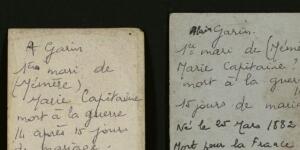 A Garin
1er mari de
(Mémère)
Marie Capitaine
mort à la guerre
14 après 15 jours
de mariage.
Alain Garin.
1er mari de (Mémè
Marie Capitaine
mort à la guerre
15 jours de maria
Né le 25 Mars 1882
Mort pour la France